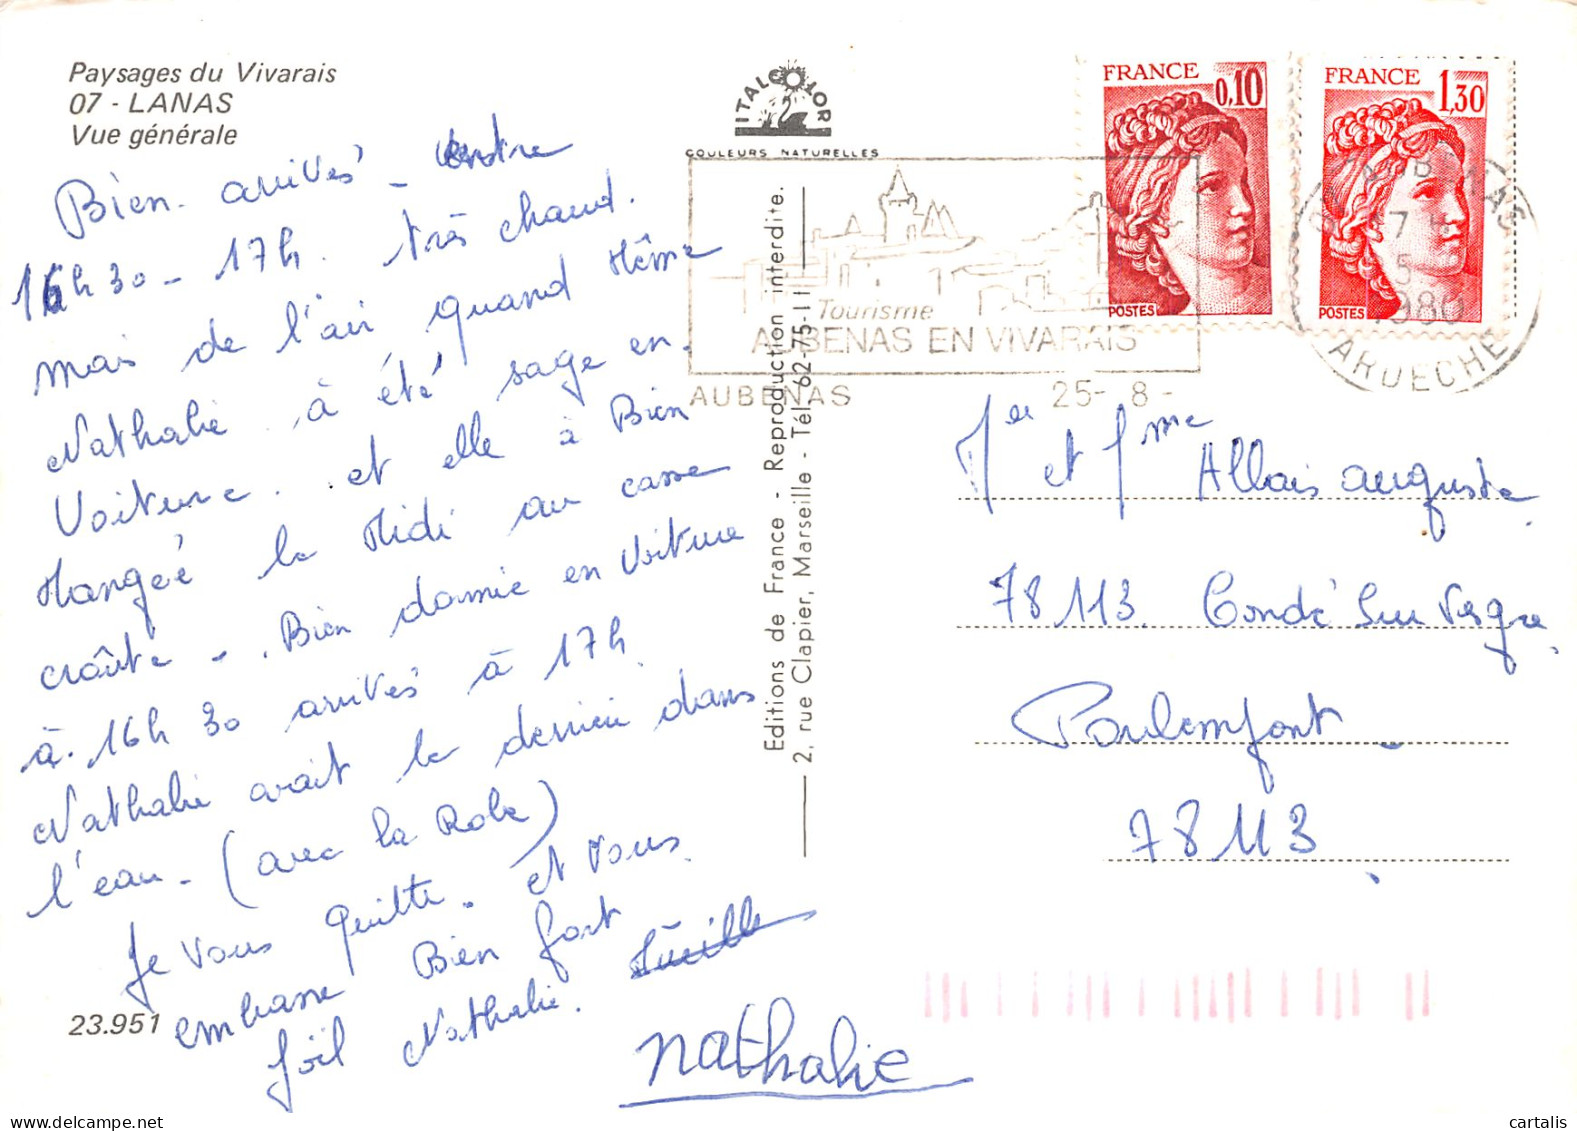 Paysages du Vivarais
07 - LANAS
Vue générale
Bien arrivés - entre
16h30 - 17h. très chaud.
mais de l'air quand Même
Nathalie à été sage en
Voiture. et elle à Bien
Mangéé le Midi au casse
croûte - . Bien dormie en Voiture
à. 16h 30 arrivés à 17h.
Nathalie avait le derrière dans
l'eau - (avec la Robe)
Je vous quitte. et vous
embrasse Bien fort
Joël Nathalie. Lucille
nathalie
23.951
ITALCOLOR
COULEURS NATURELLES
Editions de France - Reproduction interdite.
2, rue Clapier, Marseille - Tél. 62-75-11
FRANCE 0,10
POSTES
FRANCE 1,30
POSTES
Tourisme
AUBENAS EN VIVARAIS
AUBENAS 25- 8 -
1980
ARDECHE
Mer et Mme Allais auguste
78113. Condé Sur Vesgre
Poulemfont
78113
cartalis